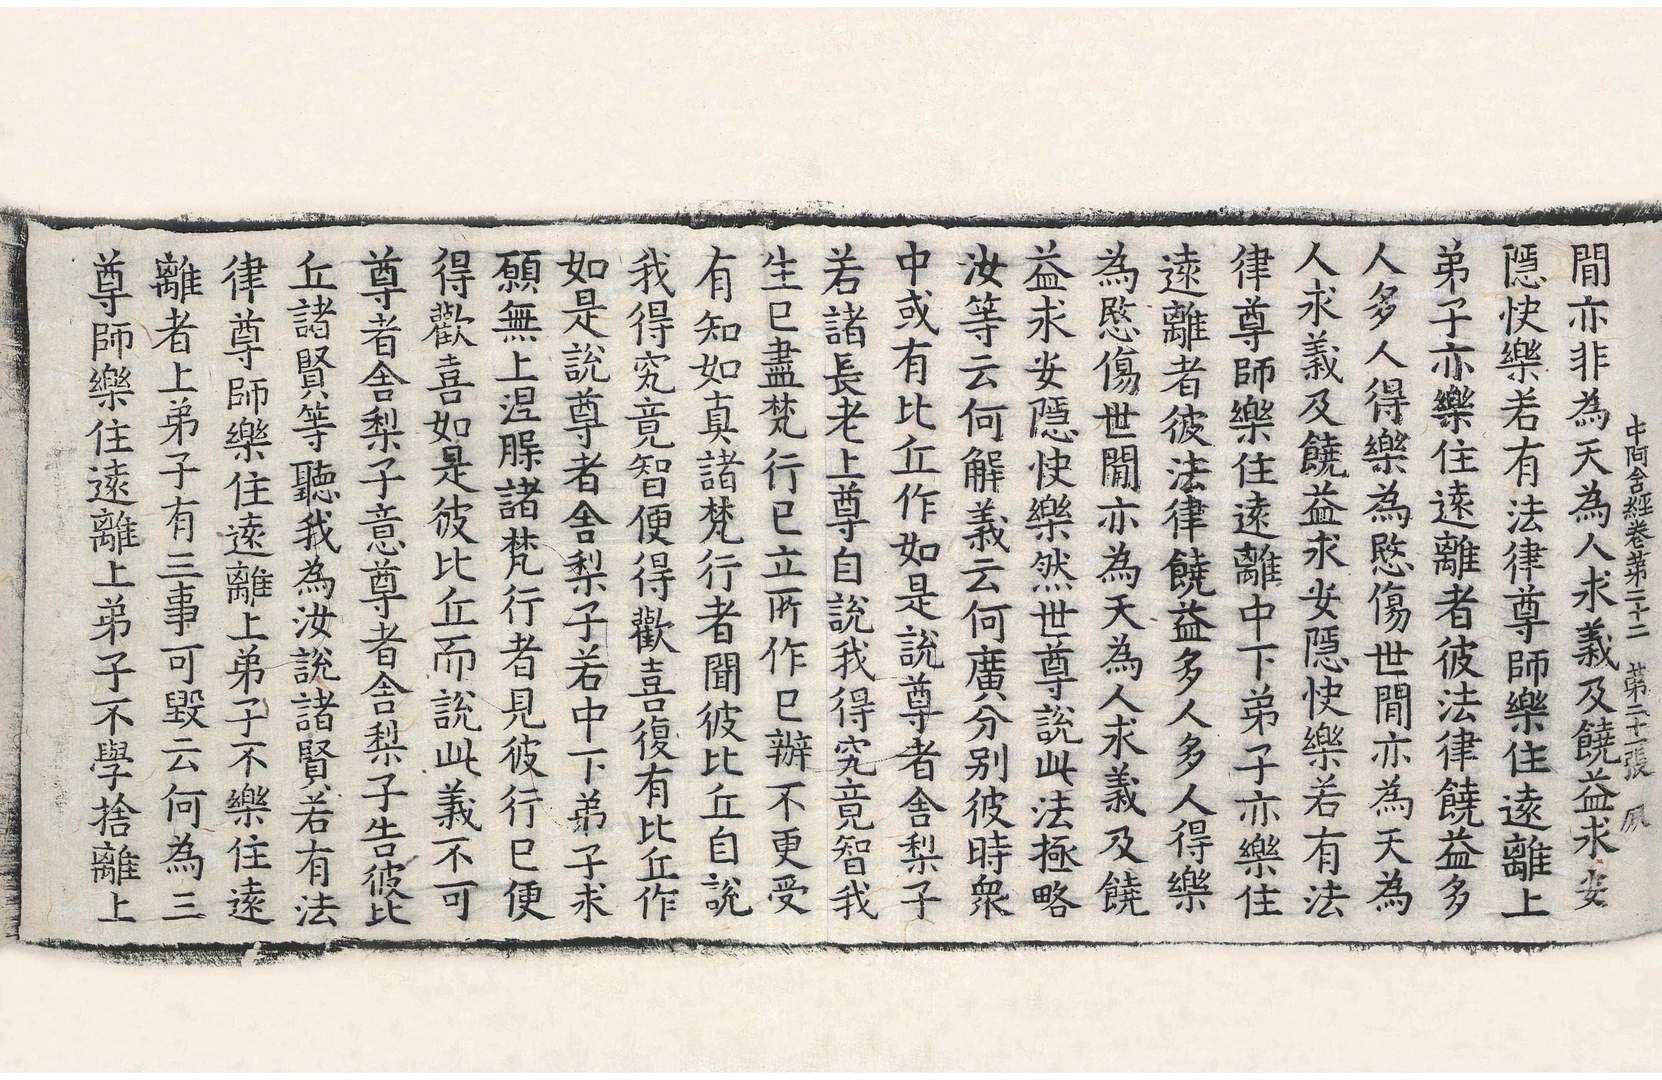 中阿含經卷第二十二　第二十一張　夙
閒亦非為天為人求義及饒益求安
隱快樂若有法律尊師樂住遠離上
弟子亦樂住遠離者彼法律饒益多
人多人得樂為愍傷世閒亦為天為
人求義及饒益求安隱快樂若有法
律尊師樂住遠離中下弟子亦樂住
遠離者彼法律饒益多人多人得樂
為愍傷世閒亦為天為人求義及饒
益求安隱快樂然世尊說此法極略
汝等云何解義云何廣分别彼時衆
中或有比丘作如是說尊者舍梨子
若諸長老上尊自說我得究竟智我
生已盡梵行已立所作已辦不更受
有知如真諸梵行者聞彼比丘自說
我得究竟智便得歡喜復有比丘作
如是說尊者舍梨子若中下弟子求
願無上涅槃諸梵行者見彼行已便
得歡喜如是彼比丘而說此義不可
尊者舍梨子意尊者舍梨子告彼比
丘諸賢等聽我為汝說諸賢若有法
律尊師樂住遠離上弟子不樂住遠
離者上弟子有三事可毀云何為三
尊師樂住遠離上弟子不學捨離上